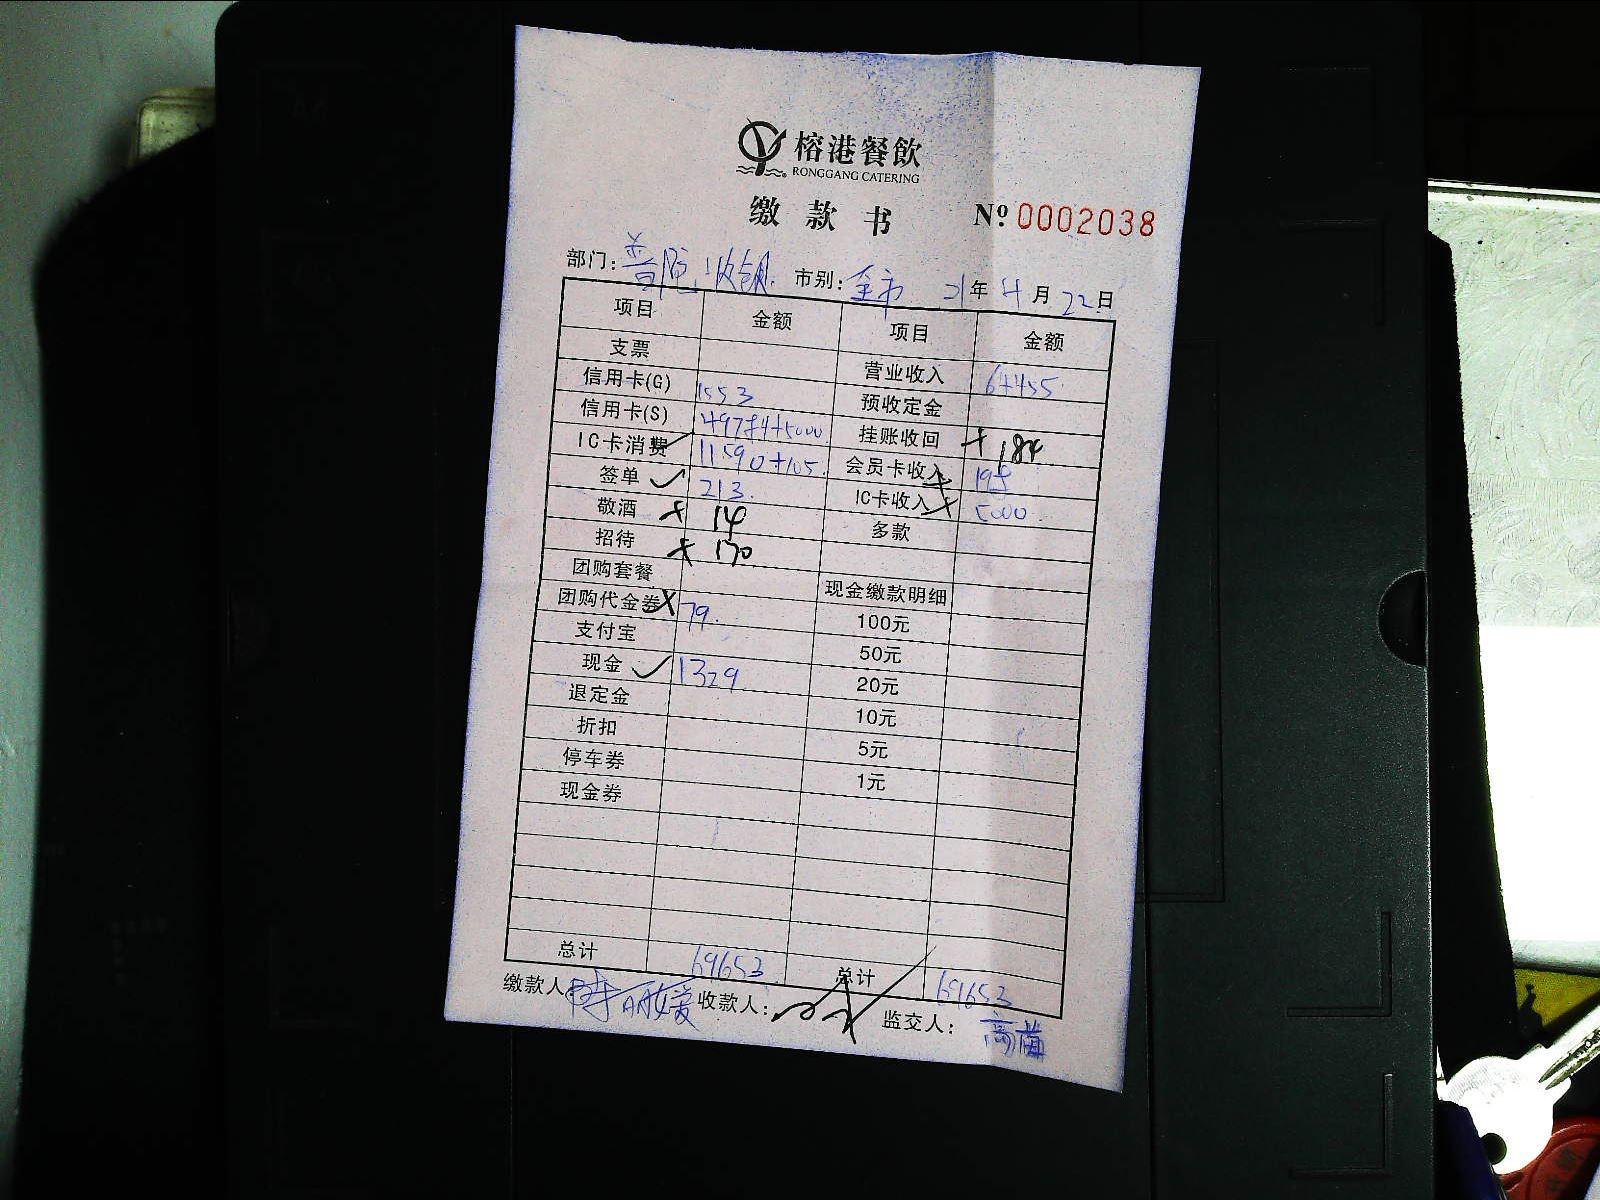 榕港餐飲
RONGGANG CATERING
缴款书 Nº 0002038
部门: 普陀收银 市别: 全市 21年4月22日
项目 金额 项目 金额
支票 营业收入 64455
信用卡(G) 1553 预收定金
信用卡(S) 49784+5000 挂账收回 + 184
IC卡消费 11590+105 会员卡收入 198
签单 213 IC卡收入 5000
敬酒 + 14 多款
招待 + 170
团购套餐 现金缴款明细
团购代金券 79 100元
支付宝 50元
现金 1329 20元
退定金 10元
折扣 5元
停车券 1元
现金券
总计 69653 总计 69653
缴款人: 收款人: 监交人: